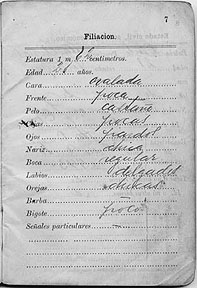 7
Filiacion.
Estatura 1 m. centímetros.
Edad años.
Cara ovalada
Frente poca
Pelo castaño
Cejas pocas
Ojos pardos
Nariz chica
Boca regular
Labios delgados
Orejas chicas
Barba
Bigote poco
Señales particulares